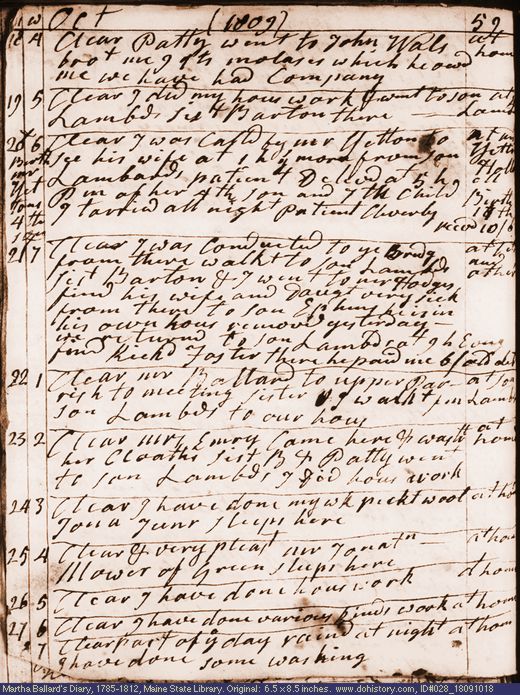 m w Oct (1809) 59
18 4 Clear Patty went to John Wals at
brot me 9 lb molases which he owd home
me we have had Company
19 5 Clear I did my hous work & went to son at
Lambds Sist Barton there Lambd
20 6 Clear I was Calld by mr Yetton to at mr
Birth see his wife at 1 h morn from son
mr Lambards patient Delivd at 5 h
P m of her 4th son and 7th Child Birth
4th I tarried all night Patient Cleverly 18th
son recd 10/6
21 7 Clear I was Conducted to ye Bridg at
from there walkt to son Lambds and
Sist Barton & I went to mr Hodges other
find his wife and Daug very sick
from there to son Ephms he is in
his own hous removd yesterday
we returnd to son Lambds at 9 h Evng
find Richd Foster there he paid me 6/ old det
22 1 Clear mr Ballard to upper Par- at son
rish to meeting sister & I walkt from Lambds
son Lambds to our hous
23 2 Clear mrs Emry Came here & washt at
her Cloaths Sist B & Patty went home
to son Lambds I did hous work
24 3 Clear I have done my wk pickt wool at home
Jona Junr sleeps here
25 4 Clear & very pleast mr Jonatn
Mower of Green sleeps here at home
26 5 Clear I have done hous work at home
27 6 Clear I have done various kinds work at home
7 Clear part of ye day raind at night at home
I have done some washing
Martha Ballard's Diary, 1785-1812, Maine State Library. Original: 6.5 x 8.5 inches. www.dohistory.org, ID#028_18091018